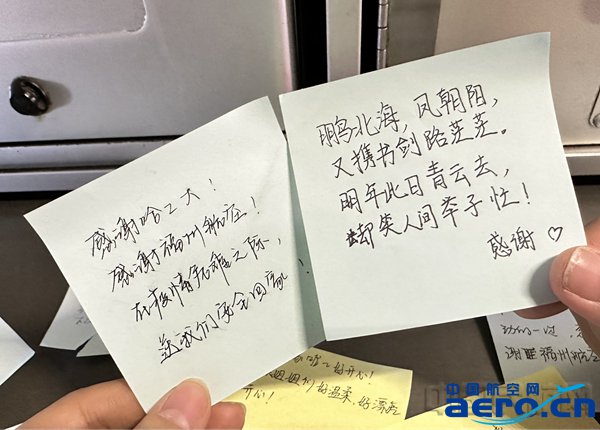 感谢哈工大!
感谢福州航空!
在疫情危难之际,
送我们安全回家
鹏北海,凤朝阳,
又携书剑路茫茫。
明年此日青云去,
却笑人间举子忙!
感谢♡
好开心!
好温柔,好漂亮
开心!
谢谢福州航空
中国航空网
aero.cn